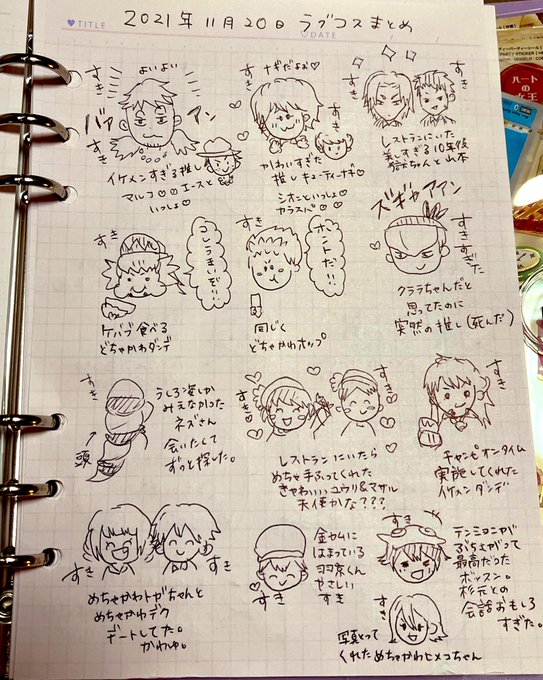 ♥TITLE 2021年11月20日 ラブコスまとめ
♡DATE
すき
よいよい
バァ
アン
すき
イケメンすぎる推し
マルコ♡♡エースと
いっしょ♡
すき
ナギだよぉ♡
すき
かわいすぎた
推しキューティーナギ♡
シオンといっしょ♡
カラスバ♡♡
すき
すき
レストランにいた
美しすぎる10年後
獄ちゃんと山本
ズギャアアン
すきすぎた
クララちゃんだと
思ってたのに
突然の推し(死んだ)
すき
コレうまいぞ!!
ケバブ食べる
どちゃかわダンデ
すき
ホントだ!!
同じく
どちゃかわホップ
すき
頭
うしろ姿しか
みえなかった
ネズさん
会いたくて
ずっと探した。
すき
すき
レストランにいたら
めちゃ手ふってくれた
きゃわいいユウリ&マサル
天使かな???
すき
チャンピオンタイム
実施してくれた
イケメンダンデ
すき
すき
めちゃかわトガちゃんと
めちゃかわデク
デートしてた。
かわゆ。
金カムに
はまっている
ヨヨ京くん
やさしい
すき
すき
すき
テンションが
ぶちあがって
最高だった
ボッスン。
杉元との
会話おもしろ
すぎた。
すき
写真とって
くれためちゃかわヒメコちゃん
ハートの
女王